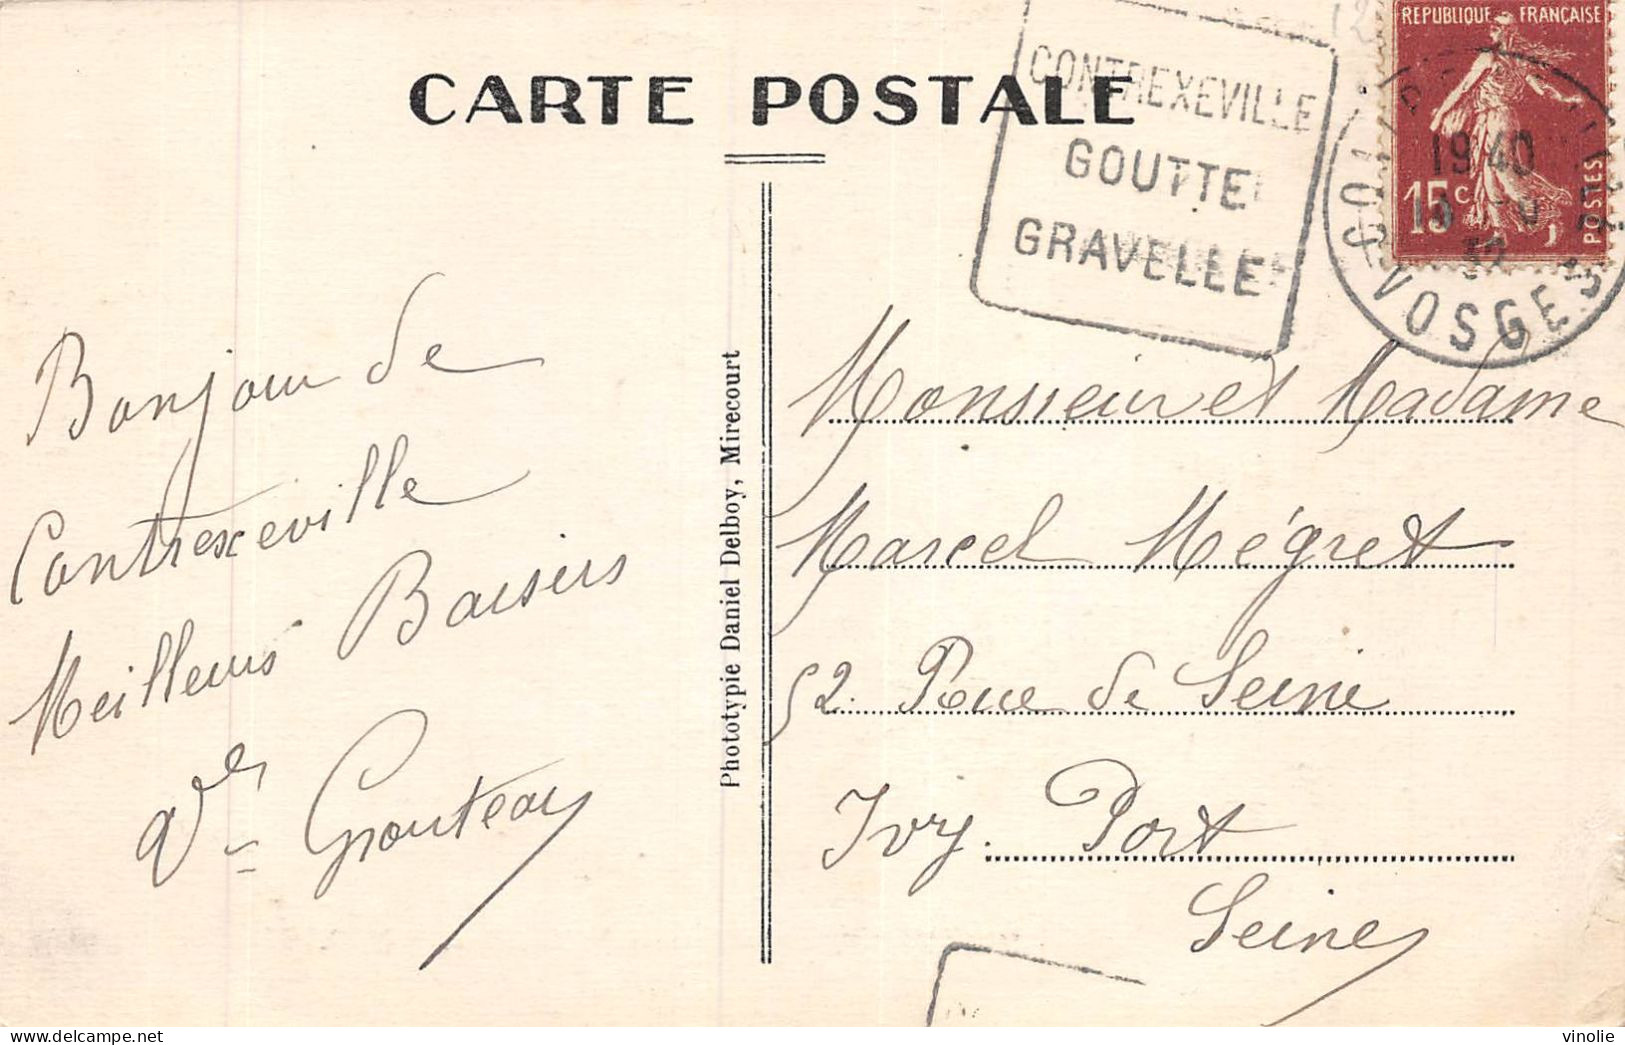 CARTE POSTALE
CONTREXEVILLE
GOUTTE
GRAVELLE
REPUBLIQUE FRANÇAISE
15c
POSTES
19 40
32
VOSGES
Bonjour de
Contrexeville
Meilleurs Baisers
Phototypie Daniel Delboy, Mirecourt
Monsieur et Madame
Marcel Mégret
52. Rue de Seine
Ivry. Port
Seine
vinolie